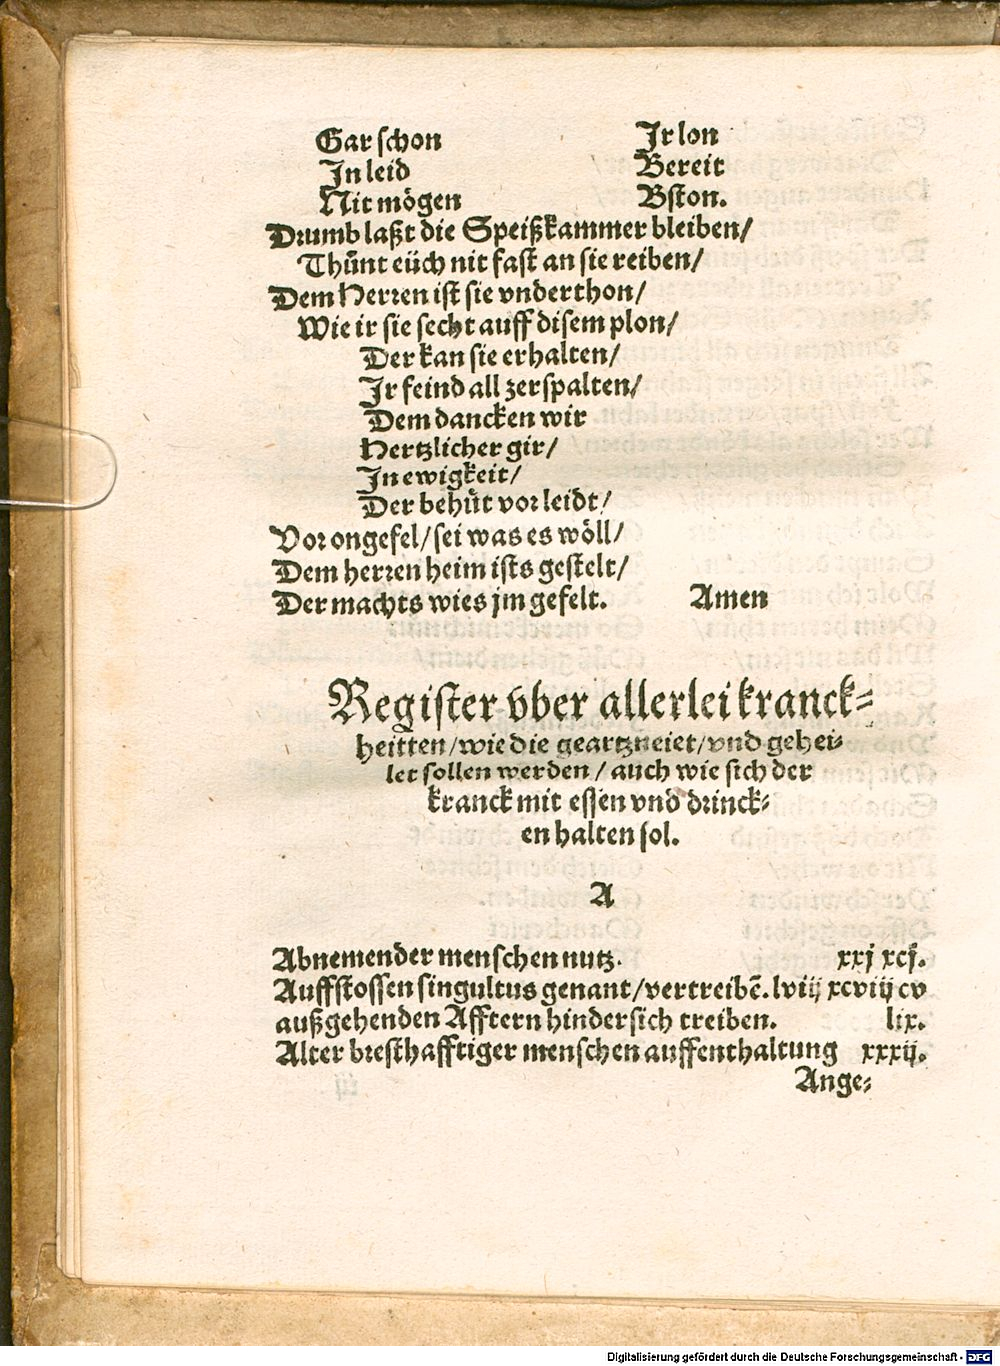 Gar schon
In leid
Nit mögen
Ir lon
Bereit
Bston.
Drumb laßt die Speißkammer bleiben/
Thůnt eüch nit fast an sie reiben/
Dem Herren ist sie vnderthon/
Wie ir sie secht auff disem plon/
Der kan sie erhalten/
Ir feind all zerspalten/
Dem dancken wir
Hertzlicher gir/
In ewigkeit/
Der behüt vor leidt/
Vor ongefel/sei was es wöll/
Dem herren heim ists gestelt/
Der machts wies jm gefelt. Amen
Register vber allerlei kranck-
heitten/wie die geartzneiet/vnd gehei-
let sollen werden/auch wie sich der
kranck mit essen vnd drinck-
en halten sol.
A
Abnemender menschen nutz. xxj xcj.
Auffstossen singultus genant/vertreibē. lviij xcviij cv
außgehenden Afftern hinder sich treiben. lix.
Alter bresthafftiger menschen auffenthaltung xxxij.
Ange-
Digitalisierung gefördert durch die Deutsche Forschungsgemeinschaft - DFG